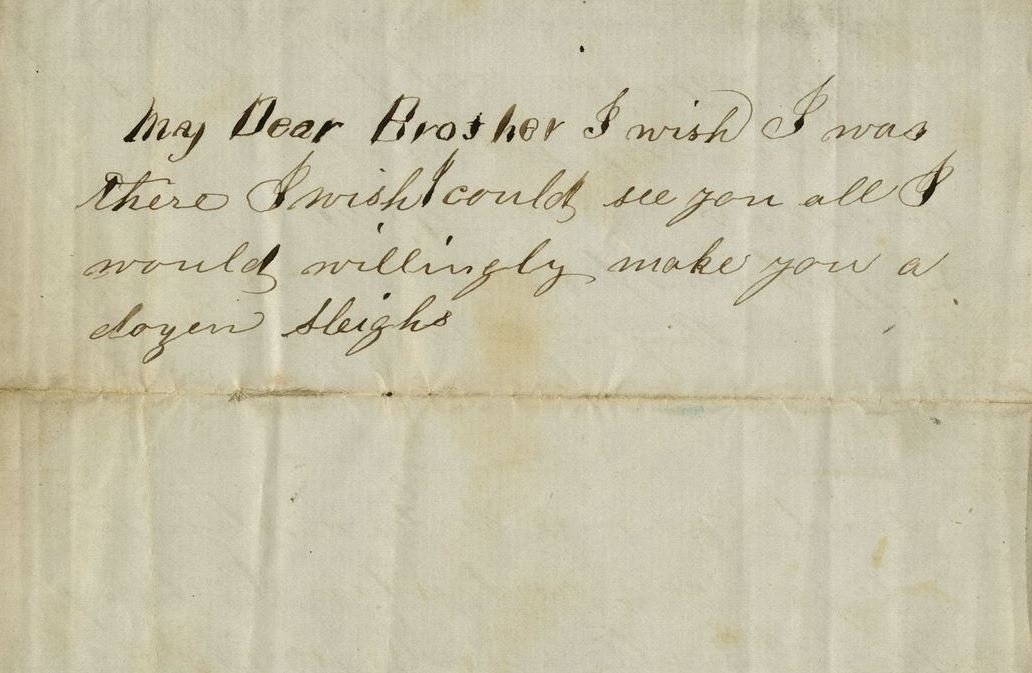 My Dear Brother I wish I was
there I wish I could see you all I
would willingly make you a
dozen sleighs